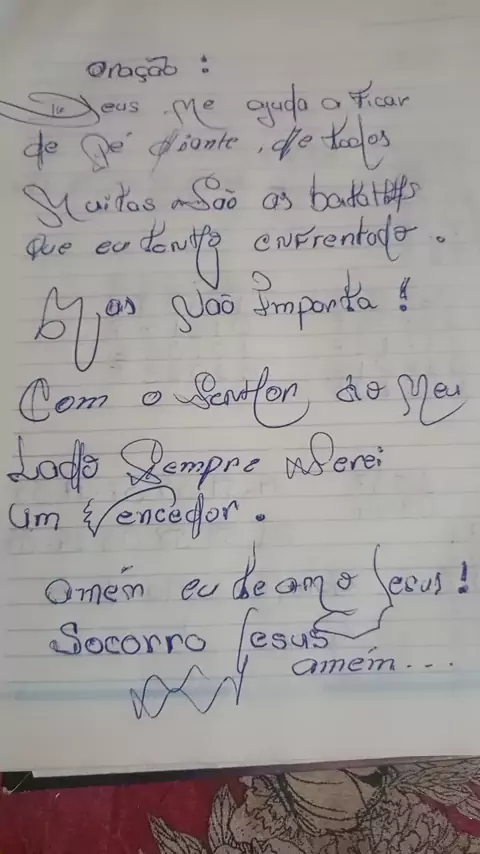 Oração :
Deus me ajuda a Ficar
de Pé diante, de todos
Muitas São as batalhas
que eu tenho enfrentado.
Mas Não Importa !
Com o Senhor ao Meu
Lado Sempre Serei
um Vencedor.
amém eu te amo Jesus !
Socorro Jesus
amém...